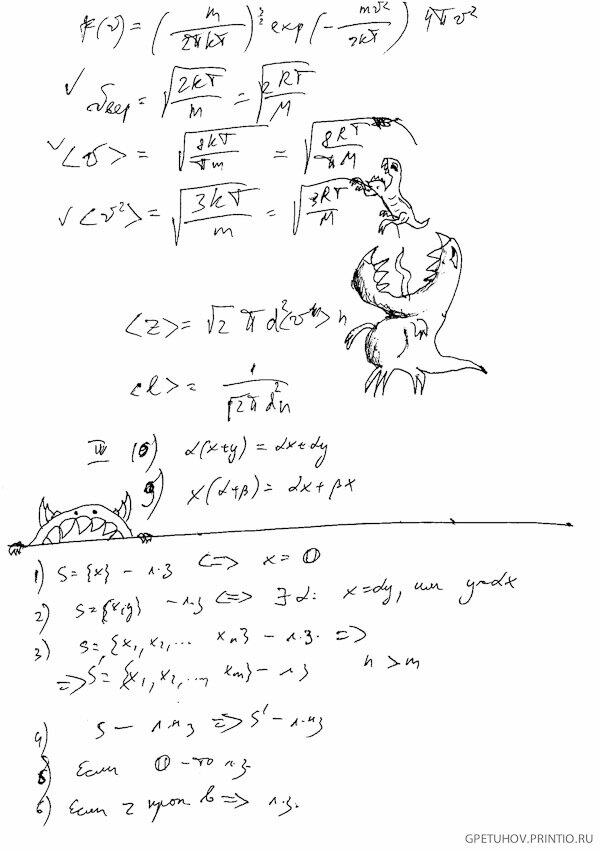 F(v) = (m/2πkT)^(3/2) exp(-mv²/2kT) 4πv²
√ vвер = √(2kT/m) = √(2RT/M)
√ <v> = √(8kT/πm) = √(8RT/πM)
√ <v²> = √(3kT/m) = √(3RT/M)
<z> = √2 π d² <v> n
<l> = 1/(√2 π d² n)
III (8) α(x+y) = αx+αy
9) x(α+β) = αx+βx
1) S = {x} - л.з <=> x = 0
2) S = {x,y} - л.з <=> ∃ α: x=αy, или y=αx
3) S = {x₁, x₂, ... xₙ} - л.з. =>
=> S' = {x₁, x₂, ..., xₘ} - л.з n > m
4) S - л.н.з => S' - л.н.з
5) Если 0 - то л.з.
6) Если 2 проп в => л.з.
GPETUHOV.PRINTIO.RU